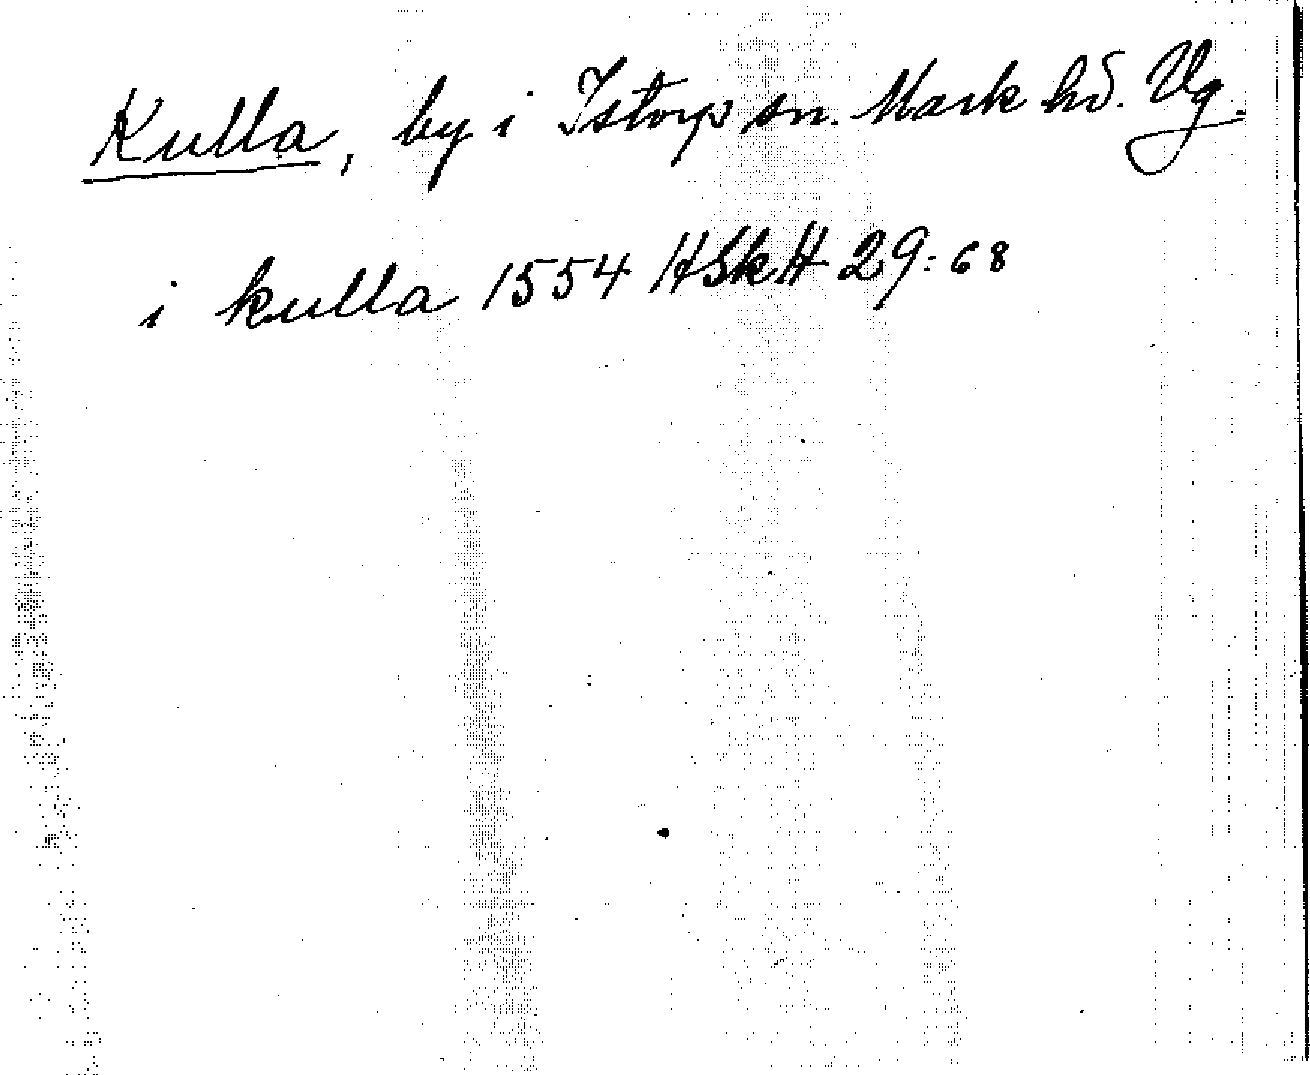 Kulla, by i Istorp sn. Mark hd. Vg.
i kulla 1554 HSkH 29:68